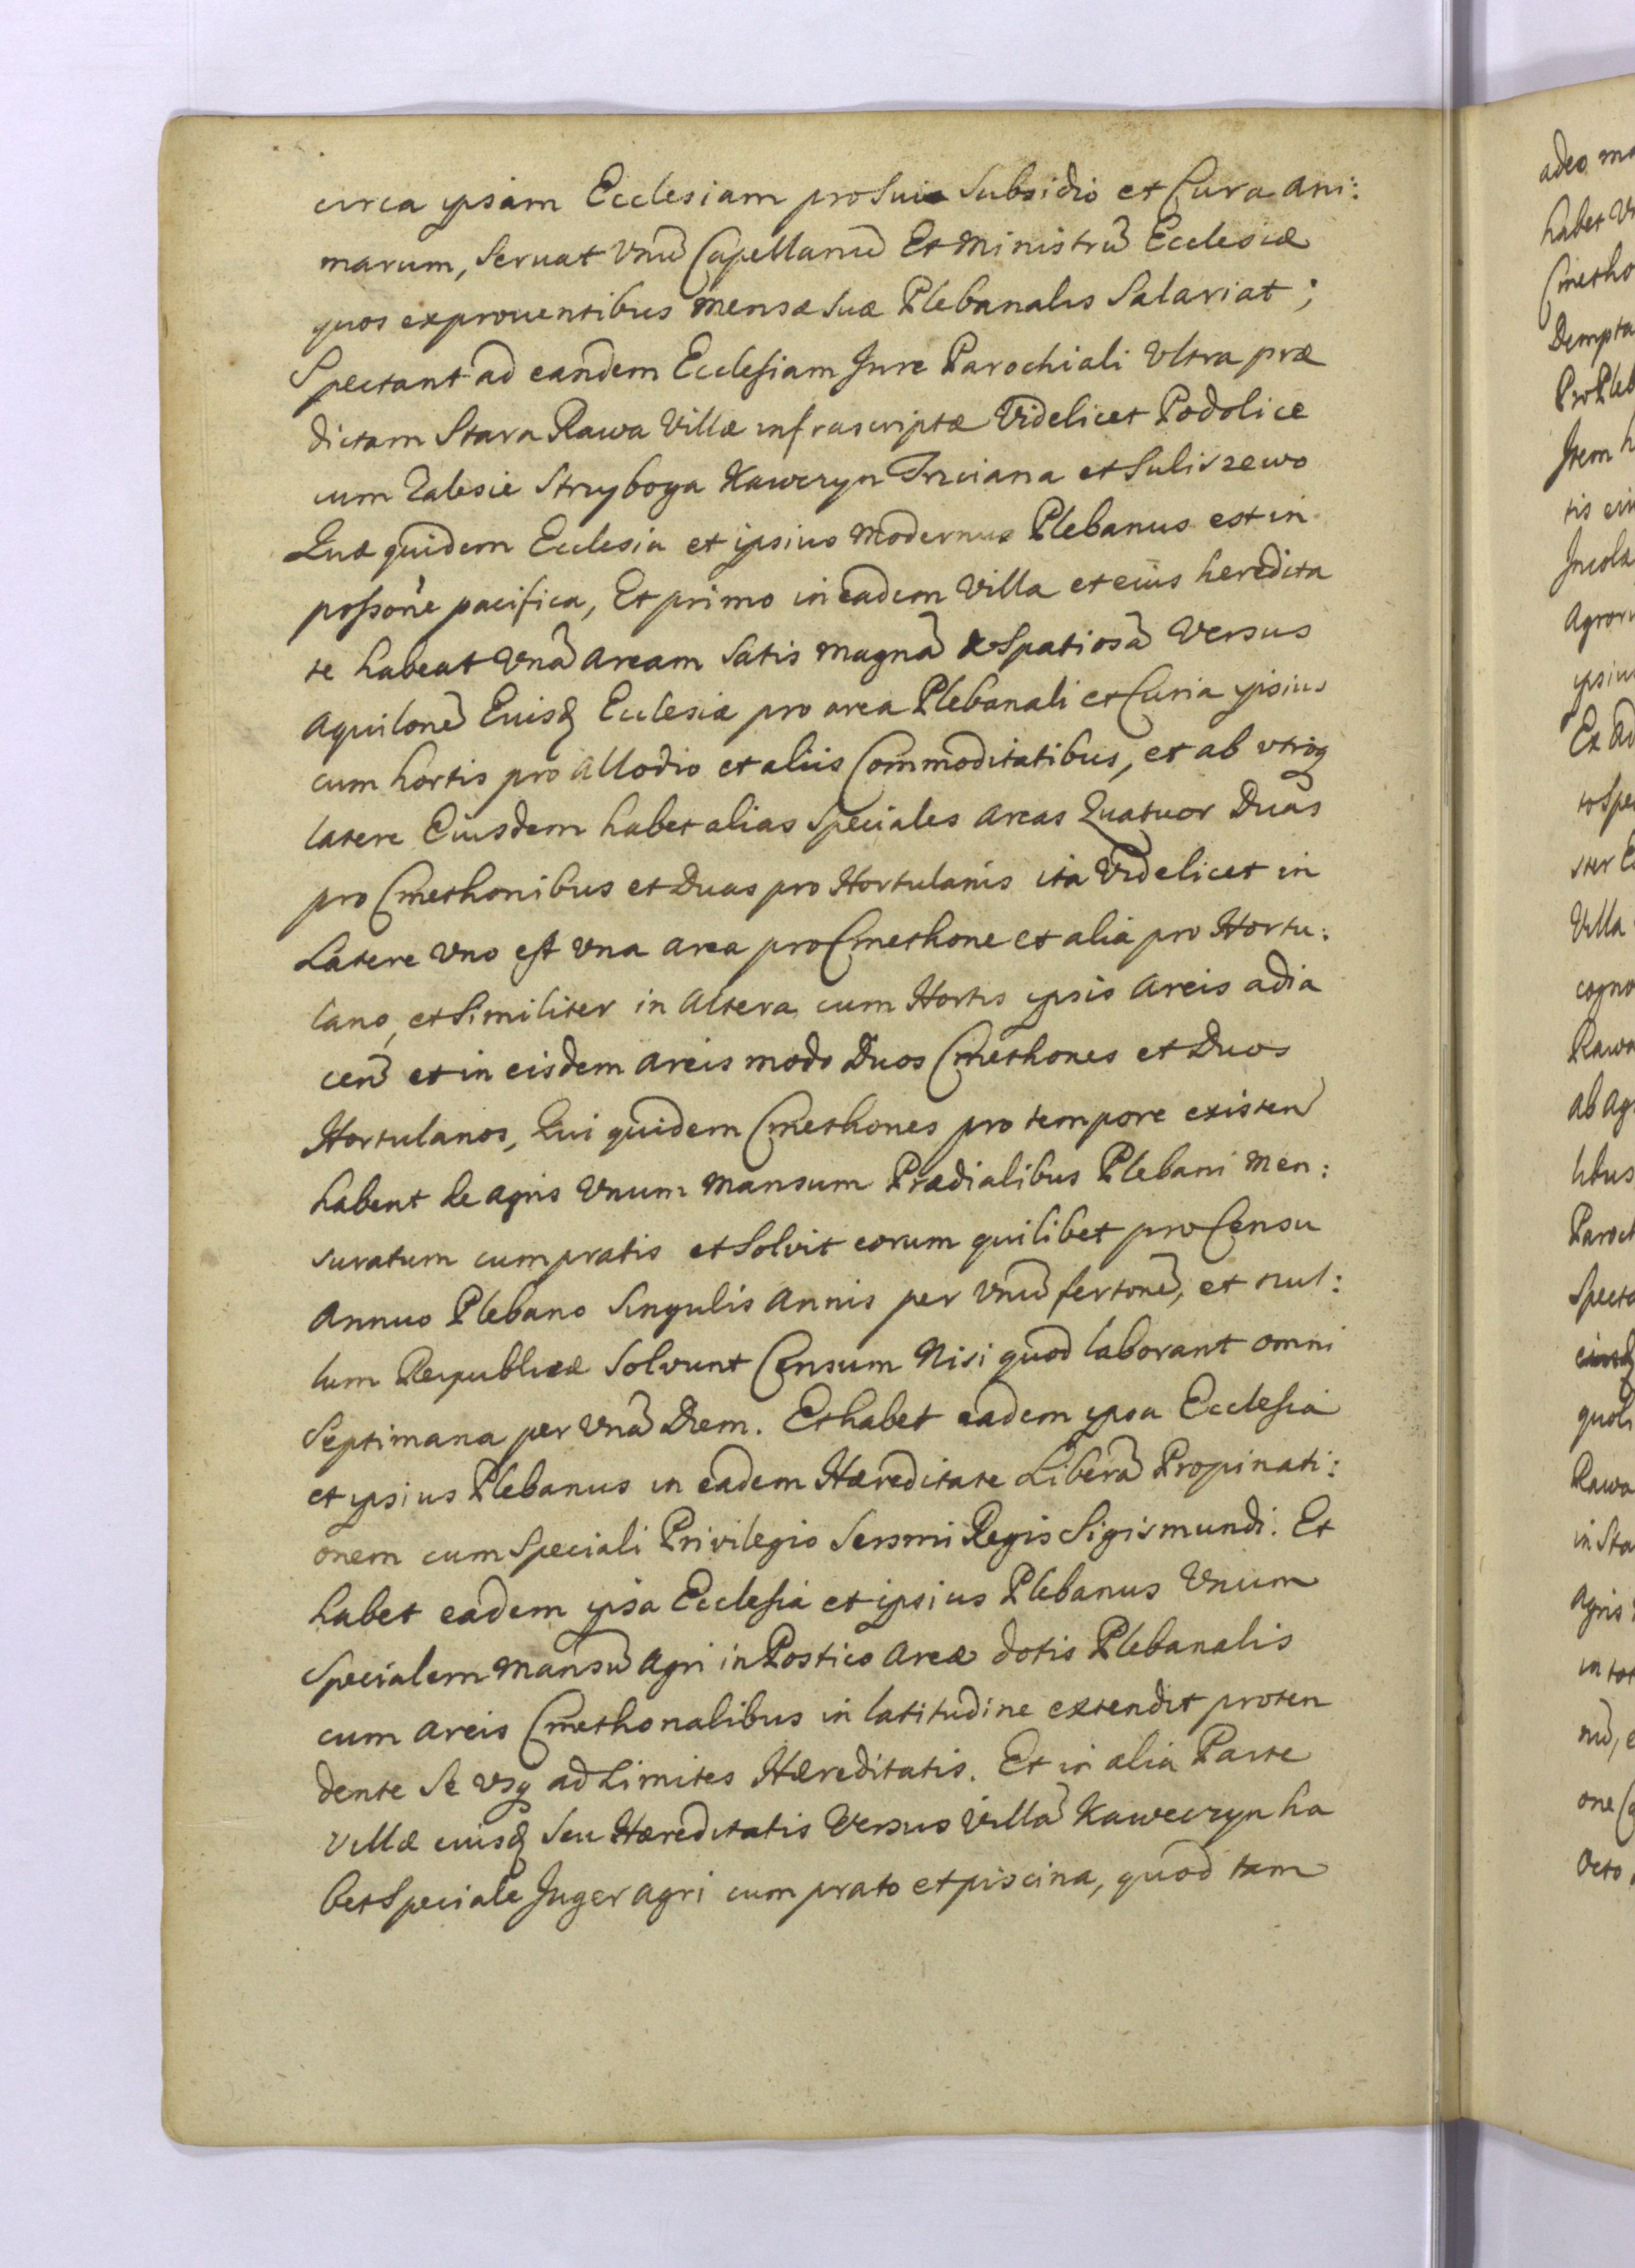 circa ipsam Ecclesiam pro sui Subsidio et Cura ani:
marum, Seruat Vnũ Capellanũ Et Ministrũ Ecclesiæ
quos exprouentibus Mensæ suæ Plebanalis Salariat;
Spectant ad eandem Ecclesiam Jure Parochiali Vltra præ
dictam Stara Rawa Villæ infrascriptæ Videlicet Podolice
cum Zalesie Strzyboga Kawczyn Trzciana et Suliszewo
Quæ quidem Ecclesia et ipsius Modernus Plebanus est in
possone pacifica, Et primo in eadem Villa et eius heredita
te habeat Vnã Aream Satis Magnã & Spatiosã Versus
Aquilonẽ Euisq Ecclesiæ pro area Plebanali et Curia ipsius
cum hortis pro Allodio et aliis Commoditatibus, et ab vtroq
latere Eiusdem habet alias Speciales Areas Quatuor Duas
pro Cmethonibus et Duas pro Hortulanis ita Videlicet in
Latere Vno est Vna Area pro Cmethone et alia pro Hortu:
lano, et Similiter in Altera cum Hortis ipsis Areis adia
ceñ et in eisdem Areis modo Duos Cmethones et Duos
Hortulanos, Qui quidem Cmethones pro tempore existeñ
habent de Agris Vnum Mansum Prædialibus Plebani Men:
suratum cum pratis et Solvit eorum quilibet pro Censu
Annuo Plebano Singulis Annis per Vnũ fertonẽ, et nul:
lum Reipublicæ Solvunt Censum Nisi quod laborant omni
Septimana per Vnã Diem. Et habet eadem ipsa Ecclesia
et ipsius Plebanus in eadem Hæreditate Liberã Propinati:
onem cum Speciali Privilegio Sersmi Regis Sigismundi. Et
habet eadem ipsa Ecclesia et ipsius Plebanus Vnum
Specialem Mansũ Agri in Postico Areæ dotis Plebanalis
cum Areis Cmethonalibus in latitudine extendit proten
dente Se Vsq ad Limites Hæreditatis. Et in alia Parte
Villæ euisq Seu Hæreditatis Versus Villã Kaweczyn ha
bet Speciale Juger Agri cum prato et piscina, quod tam